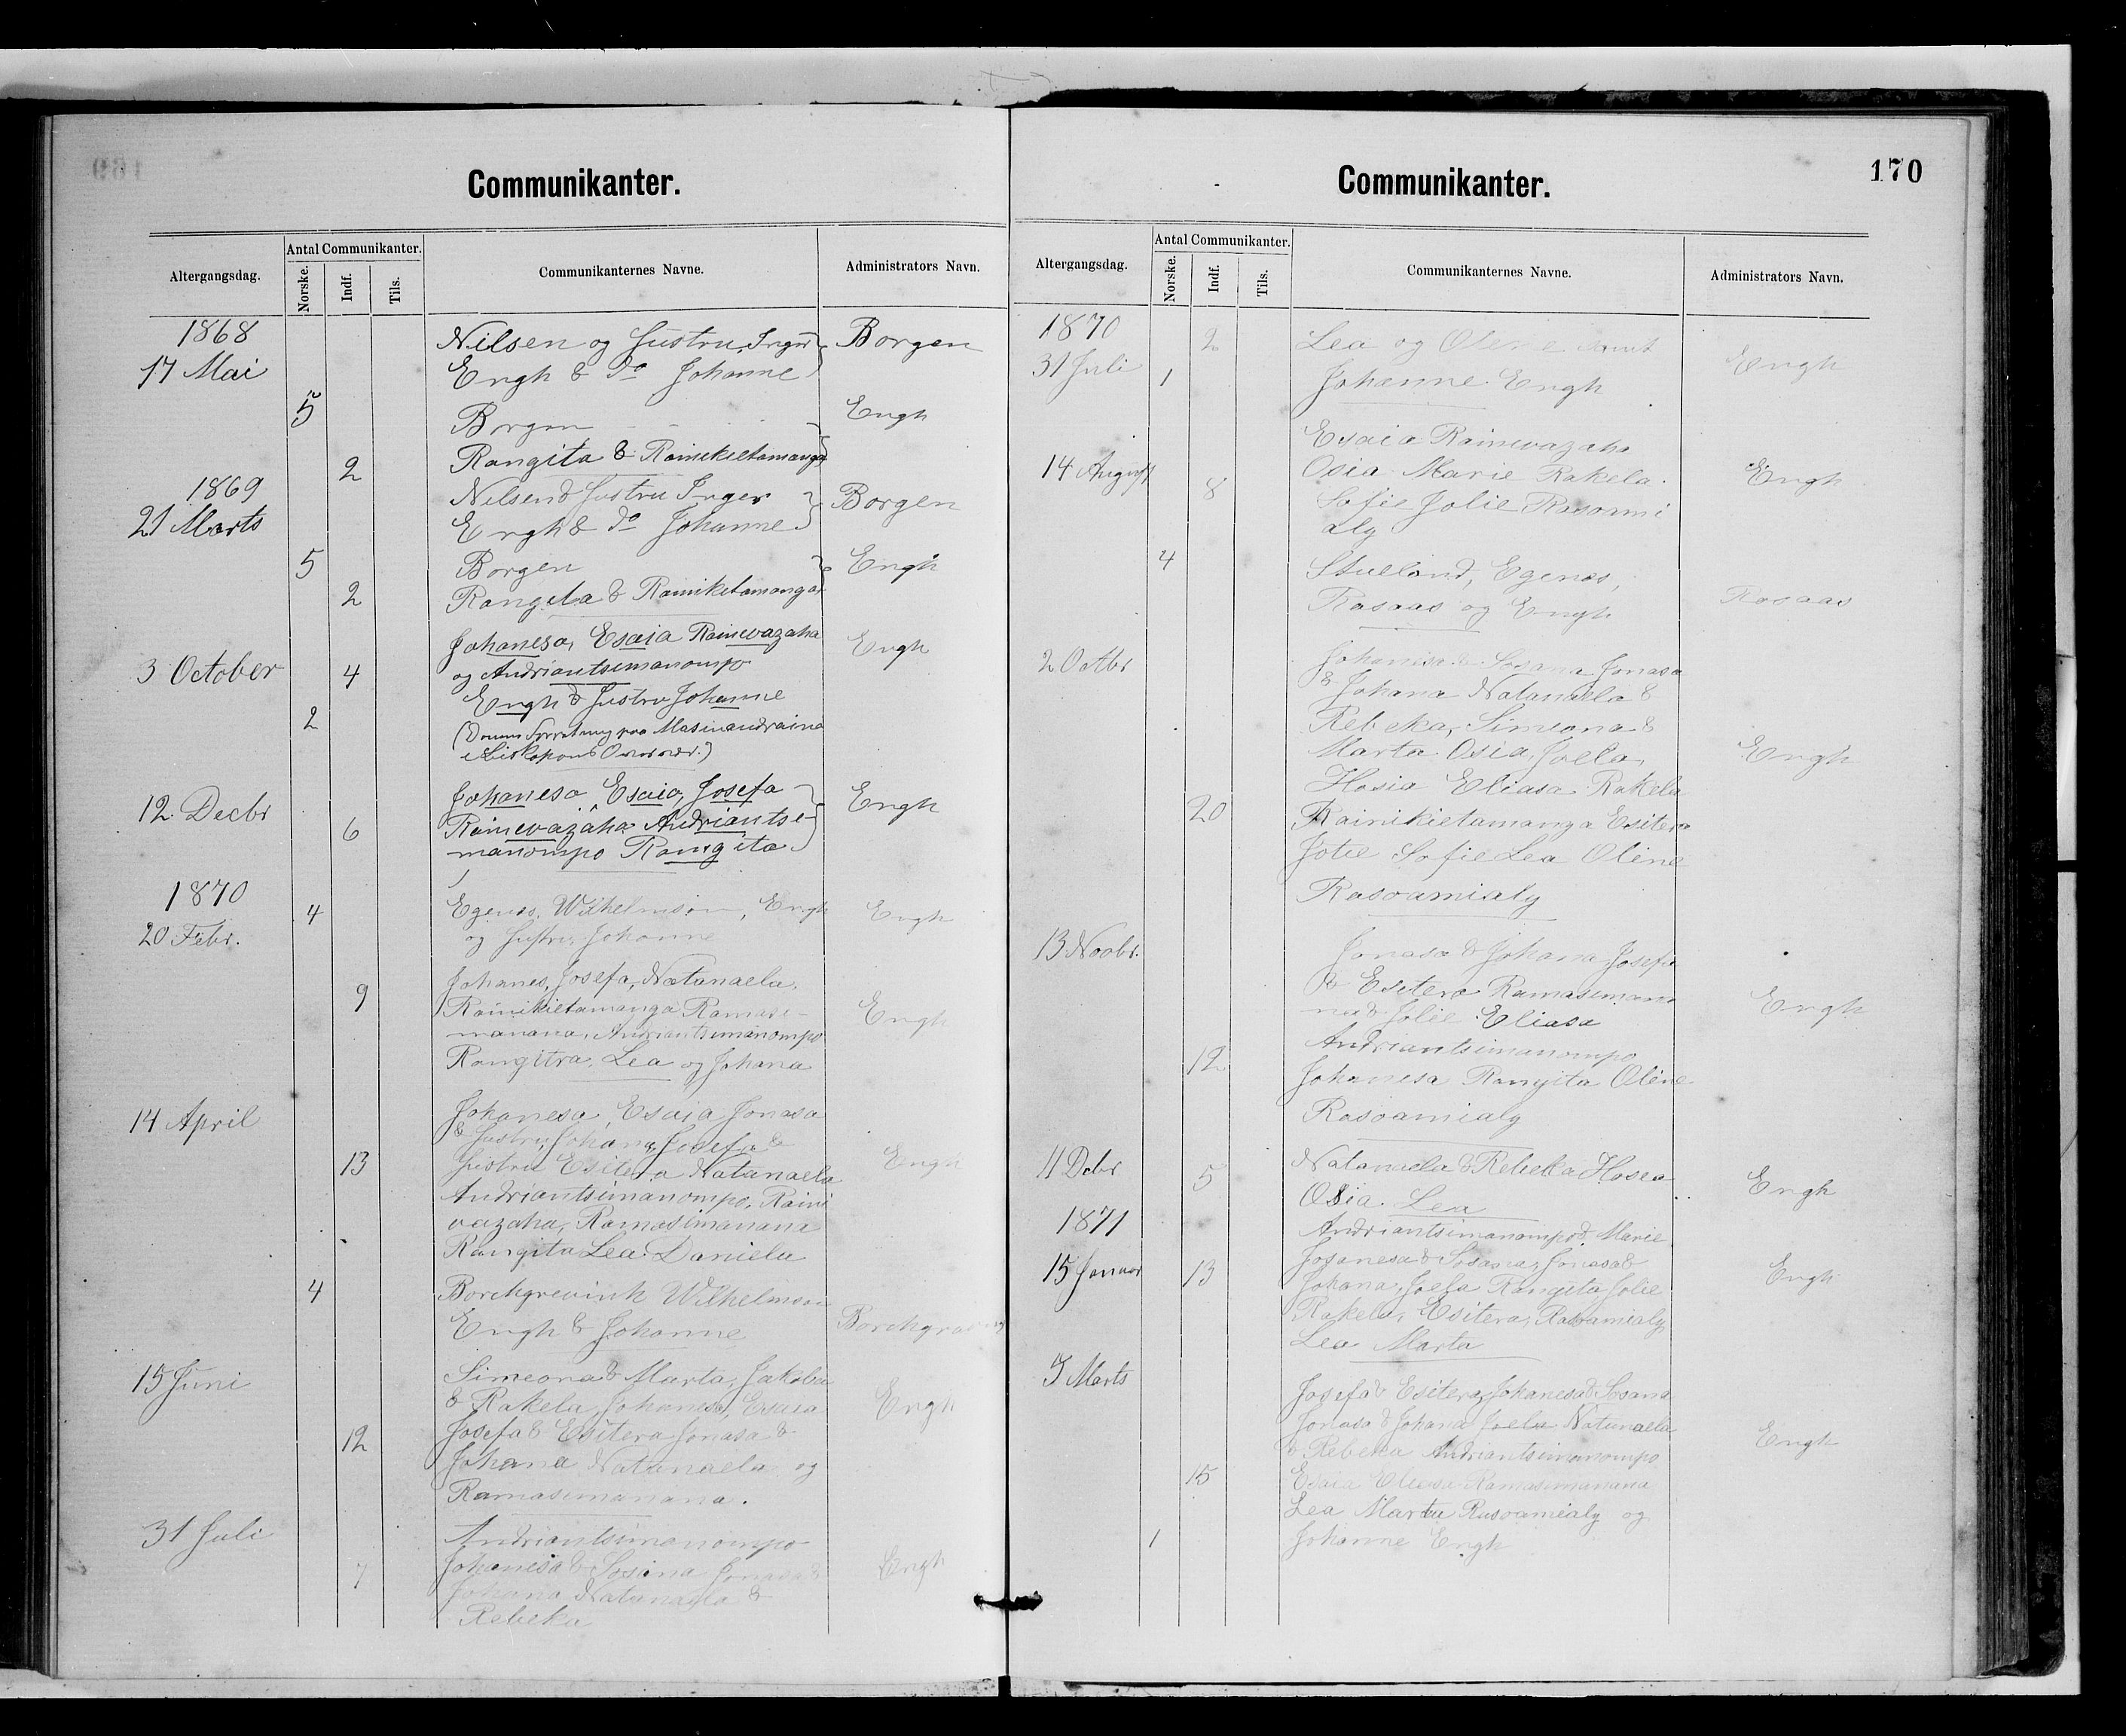 Communikanter.
Altergangsdag.
Antal Communikanter.
Norske.
Indf.
Tils.
Communikanternes Navne.
Administrators Navn.
1868
17 Mai
Nilsen og Hustru, Inger
Borgen
Engh & do Johanne
5
Borgen
Engh
2
Rangita & Rainiketamanga
1869
21 Marts
Nilsen & Hustru Inger
Borgen
Engh & do Johanne
5
Borgen
Engh
2
Rangita & Rainiketamanga
3 October
4
Johanesa, Esaia Rainivazaha
Engh
og Andriantsimanompo
2
Engh & Hustru Johanne
paa Masinandraina
12 Decbr
6
Johanesa Esaia, Josefa
Engh
Rainivazaha Andriantsi-
manompo Rangita
1870
20 Febr.
4
Egenes, Wilhelmsen, Engh
Engh
og Hustru, Johanne
9
Johanes, Josefa, Natanaela,
Rainikietamanga Ramasi-
Engh
manana, Andriantsimanompo
Rangitra, Lea og Johana
14 April
13
Johanesa, Esaia Jonasa
& Hustru, Johana, Josefa &
Hustru Esitera Natanaela
Engh
Andriantsimanompo, Raini
vazaha, Ramasimanana
Rangita Lea. Daniela
4
Borchgrevink Wilhelmsen
Engh & Johanne
15 Juni
12
Simeona & Marta, Jakoba
& Rakela, Johanesa, Esaia
Engh
Josefa & Esitera Jonasa &
Johana Natanaela og
Ramasimanana.
31 Juli
7
Andriantsimanompo
Johanesa & Sosana Jonasa &
Engh
Johana Natanaela &
Rebeka
170
Communikanter.
Altergangsdag.
Antal Communikanter.
Norske.
Indf.
Tils.
Communikanternes Navne.
Administrators Navn.
1870
31 Juli
2
Lea og Oline samt
Engh
1
Johanne Engh
14 August
8
Esaia Rainivazaha
Osia Marie Rakela.
Engh
Sofie Jolie Rasoami
aly
4
Stueland, Egenes,
Rosaas og Engh
Rosaas
2 Octbr
20
Johanesa & Sosana Jonasa
& Johana Natanaela &
Rebeka, Simeona &
Marta Osia, Joela,
Engh
Hosia Eliasa Rakela
Rainikietamanga Esitera
Jolie Sofie Lea Oline
Rasoamialy
13 Novbr.
12
Jonasa & Johana, Josefa
& Esitera Ramasimana
Engh
na & Jolie Eliasa
Andriantsimanompo
Johanesa Rangita Oline
Rasoamialy
11 Decbr
5
Natanaela & Rebeka Hosea
Engh
Osia. Lea
1871
15 Januar
13
Andriantsimanompo & Marie
Johanesa & Sosana, Jonasa &
Engh
Johana, Joela Rangita Jolie
Rakela, Esitera, Rasoamialy
Lea Marta
5 Marts
15
Josefa & Esitera, Johanesa & Sosana
Jonasa & Johana Joela Natanaela
Engh
& Rebeka Andriantsimanompo
Esaia Eliasa Ramasimanana
Lea Marta Rasoamialy og
1
Johanne Engh